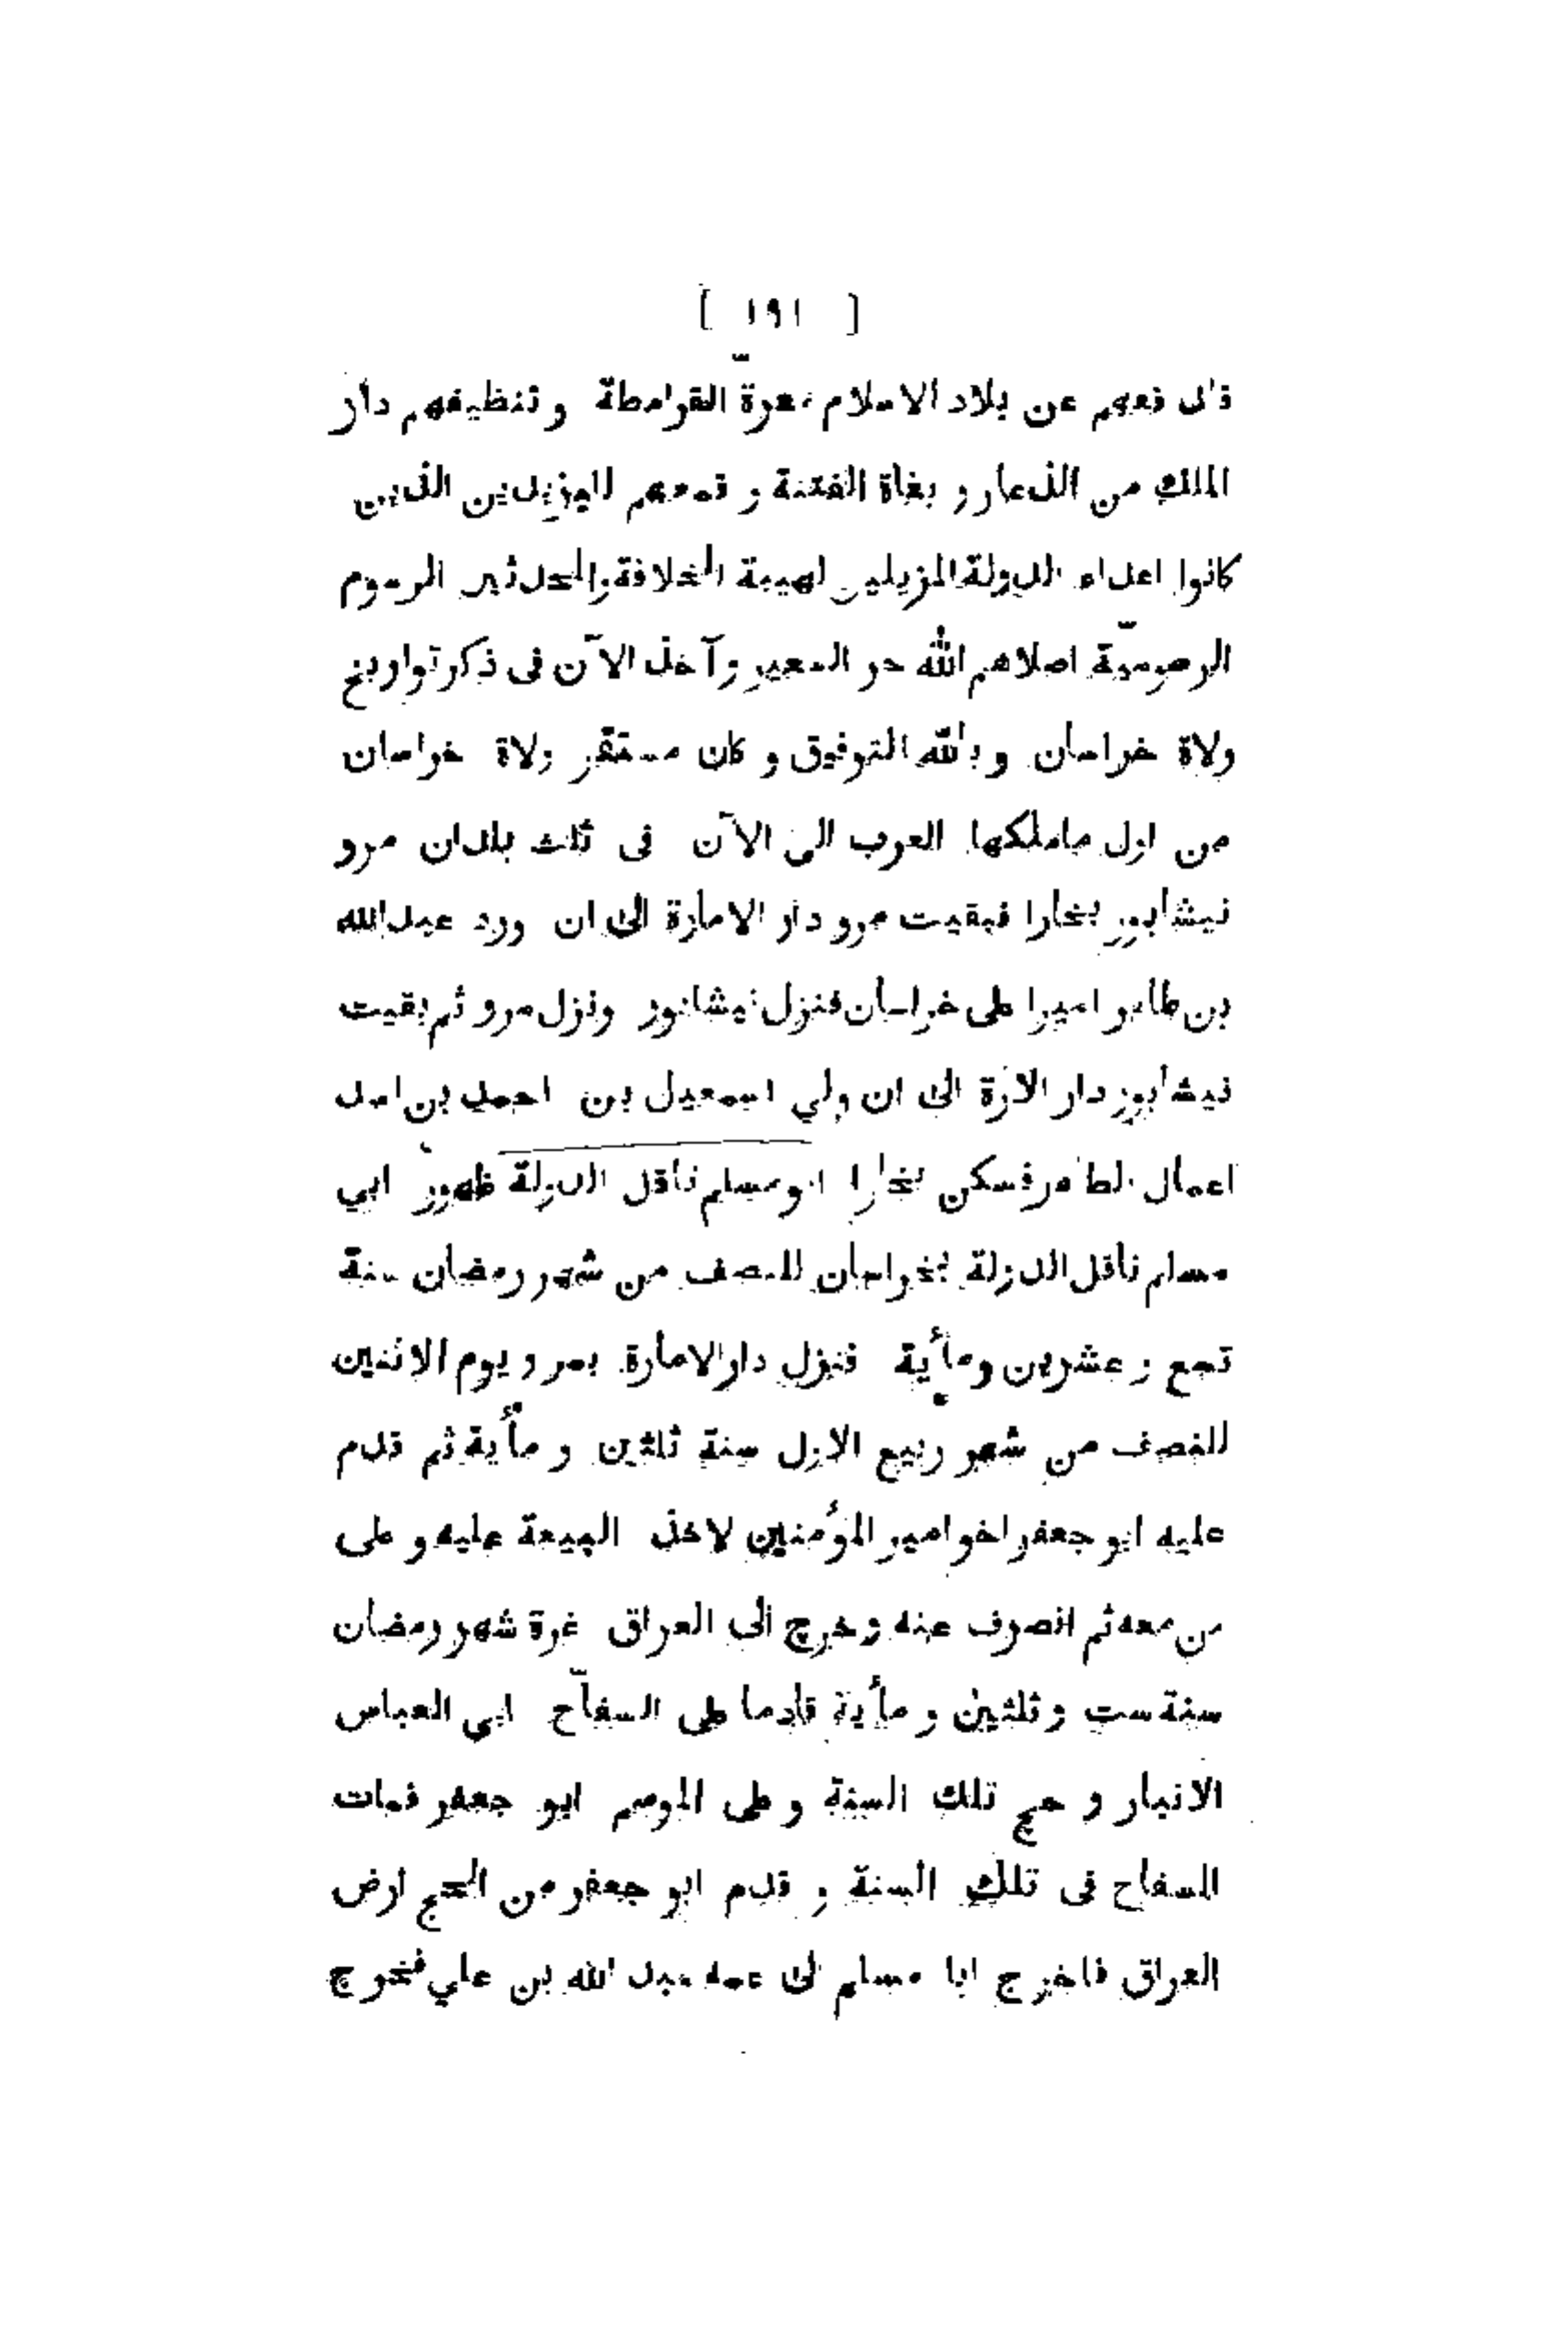 [ ١٩١ ]
فان فعهم عن بلاد الاسلام معرّة القرامطة و تنظيفهم دار
الملك من الذعار و بغاة الفتنة و قمعهم للبزيديين الذين
كانوا اعداء الدولة المزيلين لهيبة الخلافة والمحدثين الرسوم
الرصوميّة اصلاهم الله حر السعير و آخذ الآن فى ذكر تواريخ
ولاة خراسان و بالله التوفيق و كان مستقر ولاة خراسان
من اول ماملكها العرب الى الآن فى ثلث بلدان مرو
نيشابور بخارا فبقيت مرو دار الامارة الى ان ورد عبدالله
بن طاهر اميرا على خراسان فنزل نيشابور ونزل مرو ثم بقيت
نيشابور دار الارة الى ان ولي اسمعيل بن احمد بن اسد
اعمال الطاهر فسكن بخارا ابو مسلم ناقل الدولة ظهور ابي
مسلم ناقل الدولة بخراسان للنصف من شهر رمضان سنة
تسع و عشرين ومأية فنزل دار الامارة بمرو يوم الاثنين
للنصف من شهر ربيع الاول سنة ثلثين و مأية ثم قدم
عليه ابو جعفر اخو امير المؤمنين لاخذ البيعة عليه و على
من معه ثم انصرف عنه و خرج الى العراق غرة شهر رمضان
سنة ست و ثلثين و مأية قادما على السفاّح ابي العباس
الانبار و حج تلك السنة و على الموسم ابو جعفر فمات
السفاح فى تلك السنة و قدم ابو جعفر من الحج ارض
العراق فاخرج ابا مسلم الى عمه عبد الله بن علي فخرج